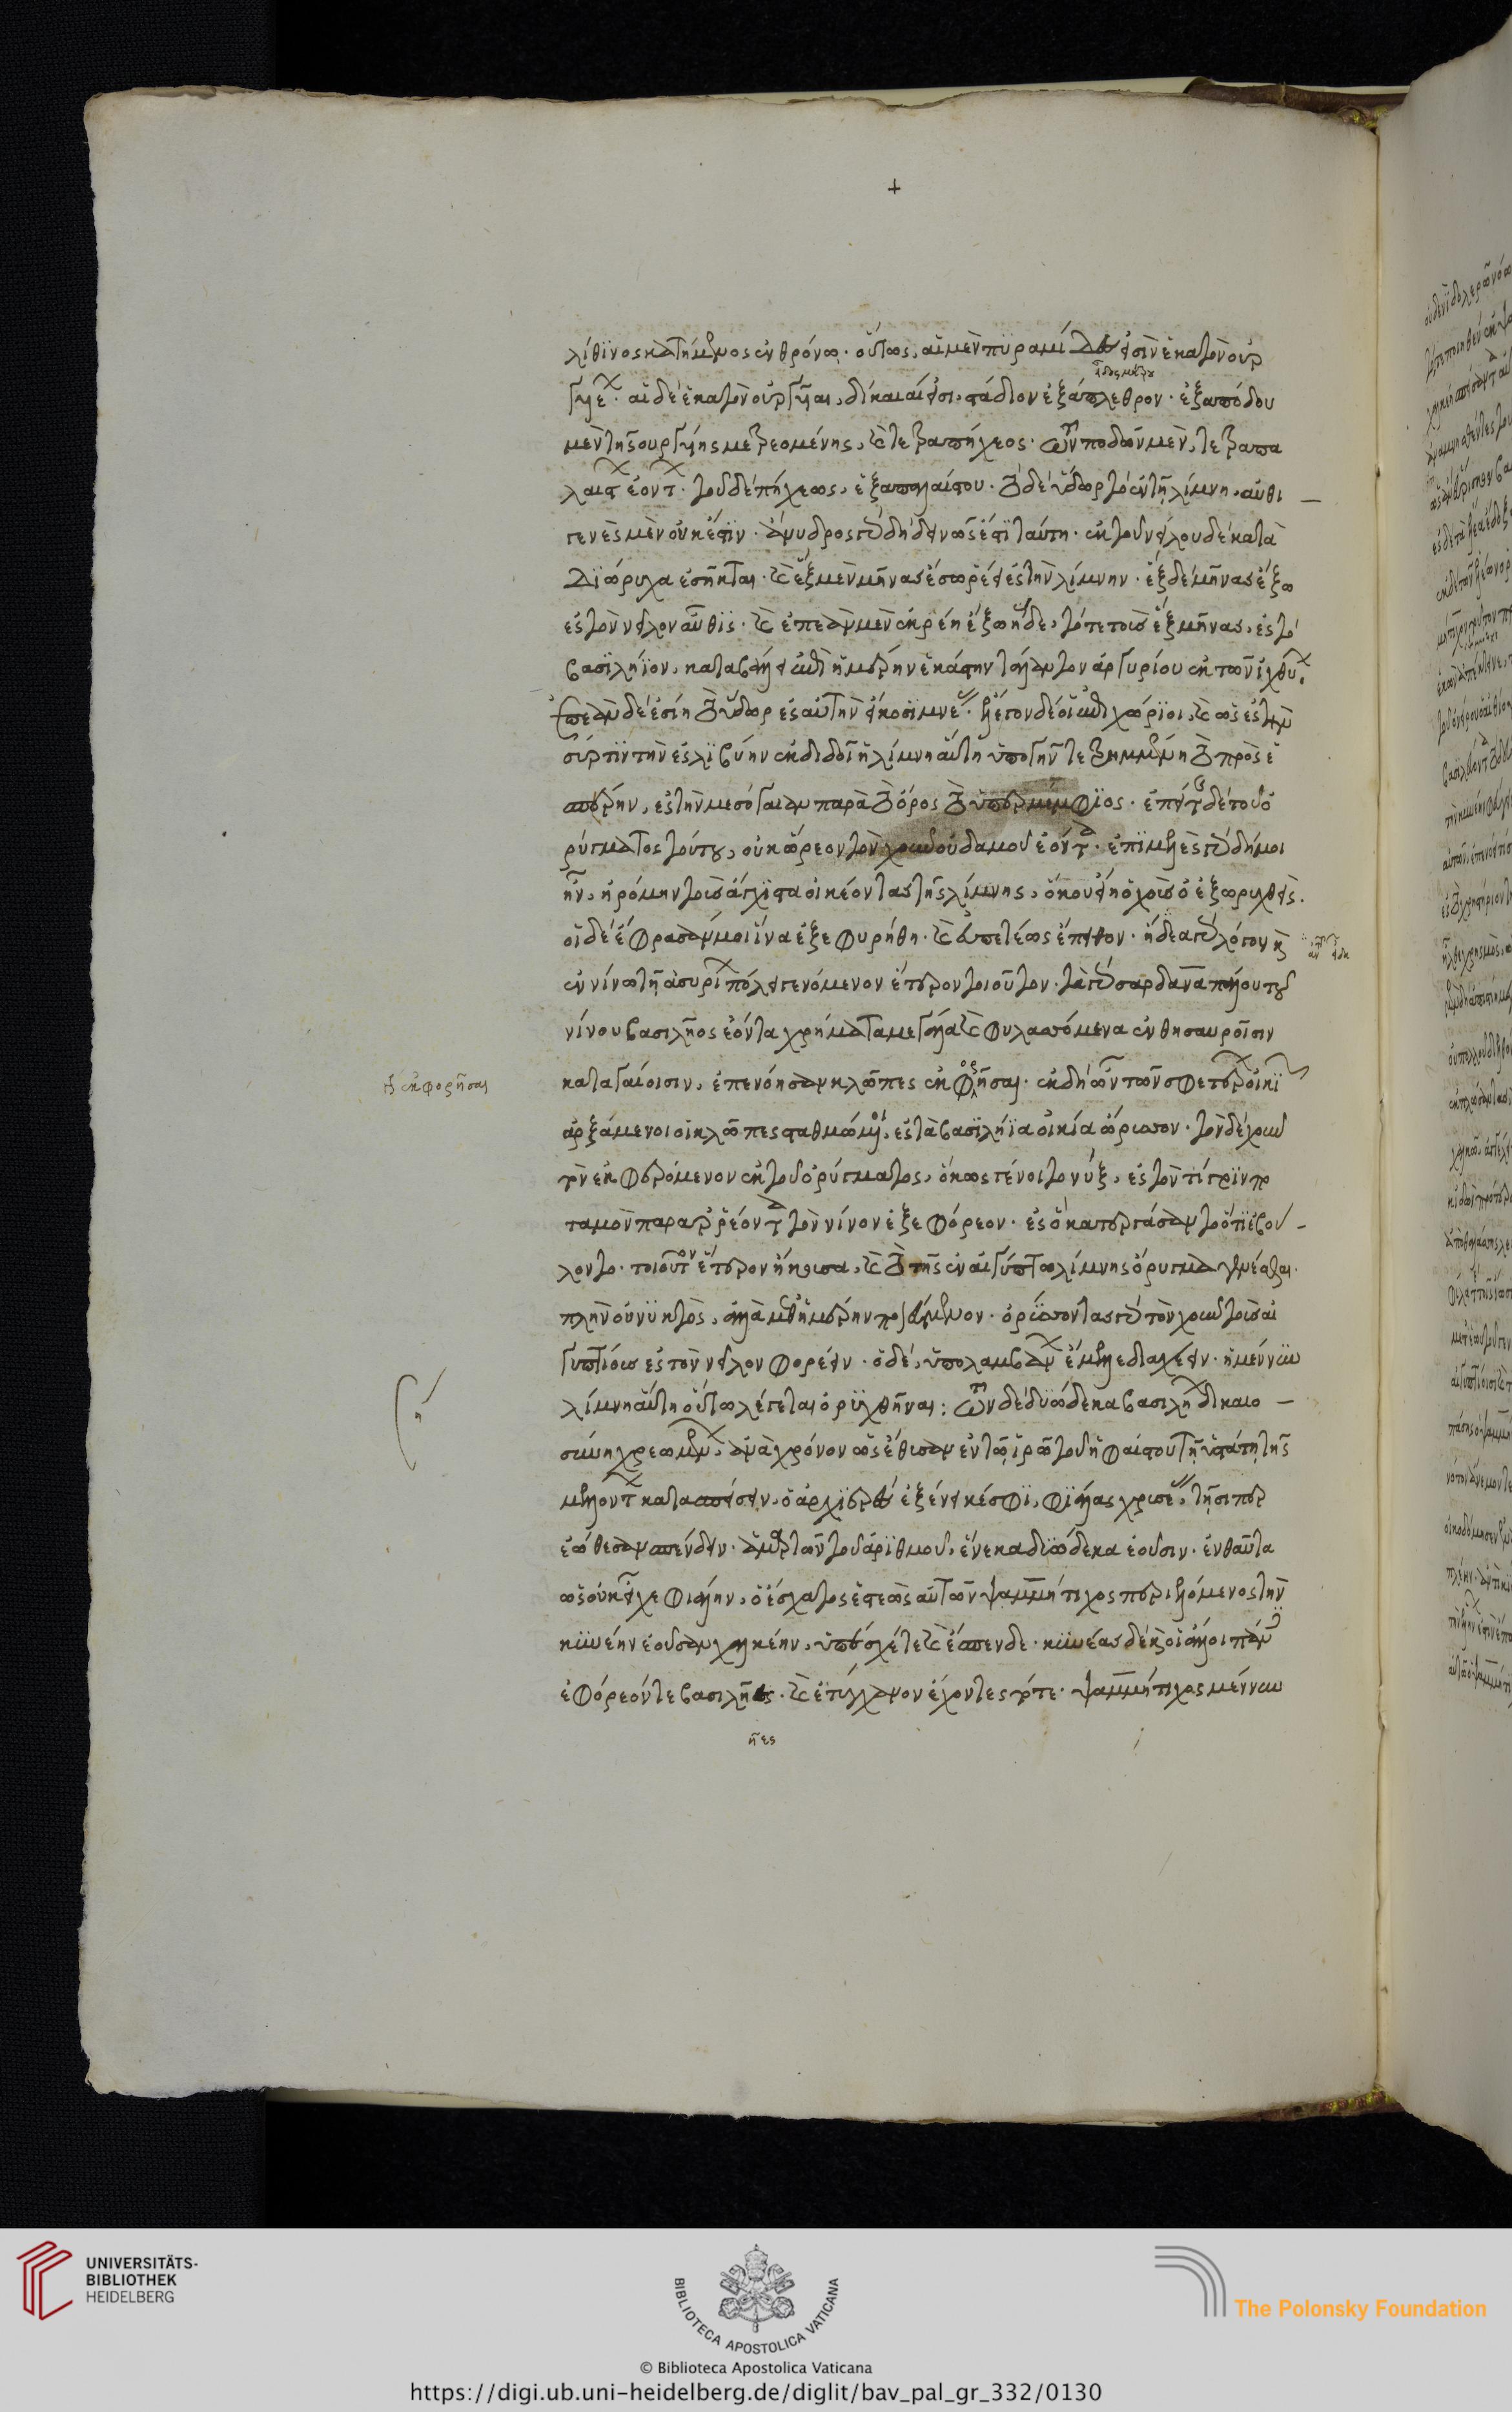 +
λίθϊνος κατήμενος ἐν θρόνῳ. οὕτως, αἱ μὲν πϋραμίδες εἰσὶν ἑκατὸν οὐρ
γυιέων. αἱ δὲ ἑκατὸν οὐργυῆαι, δίκαιαί εἰσι, στάδιον ἑξάπλεθρον. ἑξαπόδου
μὲν τῆς οὐργυιῆς μετρεομένης, καὶ τετραπήχεος. τῶν ποδῶν μὲν, τετραπα
λαίστων ἐόντων. τοῦ δὲ πήχεως, ἑξαπαλαίστου. τὸ δὲ ὕδωρ τὸ ἐν τῇ λίμνῃ, αὐθι
γενὲς μὲν οὐκ ἔστϊν. ἄνυδρος γὰρ δὴ δεινῶς ἐστῒ ταύτῃ. ἐκ τοῦ νείλου δὲ κατὰ
διώρυχα ἐσῆκται. καὶ ἓξ μὲν μῆνας ἔσω ῥέει ἐς τὴν λίμνην. ἓξ δὲ μῆνας ἔξω
ἐς τὸν νεῖλον αὖθϊς. καὶ ἐπεὰν μὲν ἐκρέῃ ἔξω ἡ δὲ, τότε τοὺς ἓξ μῆνας, ἐς τὸ
βασϊλήϊον, καταβάλλει ἐπὶ ἡμέρην ἑκάστην τάλαντον ἀργυρίου ἐκ τῶν ἰχθύων.
ἐπεὰν δὲ ἐσίῃ τὸ ὕδωρ ἐς αὐτὴν εἴκοσϊ μνέας. ἔλεγον δὲ οἱ ἐπιχώρϊοι, καὶ ὡς ἐς τὴν
σύρτϊν τὴν ἐς λϊβύην ἐκδιδοῖ ἡ λίμνη αὕτη ὑπὸ γῆν τετραμμένη τὸ πρὸς ἑ
σπέρην, ἐς τὴν μεσόγαιαν παρὰ τὸ ὄρος τὸ ὑπὲρ μέμφϊος. ἐπεί τε δὲ τοῦ ὀ
ρύγματος τούτου, οὐκ ὥρεον τὸν χοῦν οὐδαμοῦ ἐόντα. ἐπϊμελὲς γὰρ δή μοι
ἦν, ἠρόμην τοὺς ἄγχϊστα οἰκέοντας τῆς λίμνης, ὅκου εἴη ὁ χοῦς ὁ ἐξωρυχθείς.
οἱ δὲ ἔφρασάν μοι ἵνα ἐξεφορήθη. καὶ εὐπετέως ἔπειθον. ᾔδεα γὰρ λόγον καὶ
ἐν νίνῳ τῇ ἀσυρίων πόλει γενόμενον ἕτερον τοιοῦτον. τὰ γὰρ σαρδαναπάλλου τοῦ
νίνου βασιλῆος ἐόντα χρήματα μεγάλα καὶ φυλασσόμενα ἐν θησαυροῖσιν
καταγαίοισιν, ἐπενόησαν κλῶπες ἐκφορῆσαι. ἐκ δὴ ὦν τῶν σφετέρων οἰκϊ
γρ. ἐκφορῆσαι
ἀρξάμενοι οἱ κλῶπες σταθμώμενοι, ἐς τὰ βασϊλήϊα οἰκία ὤρυσσον. τὸν δὲ χοῦν
τὸν ἐκφερόμενον ἐκ τοῦ ὀρύγματος, ὅκως γένοιτο νύξ, ἐς τὸν τίγρϊν πο
ταμὸν παραρρέοντα τὸν νίνον ἐξεφόρεον. ἐς ὃ κατεργάσαντο ὅ τϊ ἐβού
λοντο. τοιοῦτον ἕτερον ἤκουσα, καὶ τὸ τῆς ἐν αἰγύπτῳ λίμνης ὄρυγμα γενέσθαι.
πλὴν οὐ νϋκτὸς, ἀλλὰ μεθ' ἡμέρην ποιεύμενον. ὀρύσσοντας γὰρ τὸν χοῦν τοὺς αἰ
γυπτίους ἐς τὸν νεῖλον φορέειν. ὁ δὲ, ὑπολαμβάνων ἔμελλε διαχέειν. ἡ μέν νῦν
λίμνη αὕτη οὕτω λέγεται ὀρϋχθῆναι: τῶν δὲ δυώδεκα βασιλέων δικαιο
σύνῃ χρεωμένων, ἀνὰ χρόνον ὡς ἔθυσαν ἐν τῷ ἱρῷ τοῦ ἡφαίστου τῇ ὑστάτῃ τῆς
μελλόντων κατασπείσειν, ὁ ἀρχϊερεὺς ἐξένεικέ σφϊ, φϊάλας χρυσέας, τῇσι περ
ἐώθεσαν σπένδειν. ἁμαρτὼν τοῦ ἀρϊθμοῦ, ἕνεκα δυώδεκα ἐοῦσιν. ἐνθαῦτα
ὡς οὐκ εἶχε φιάλην, ὁ ἔσχατος ἑστεὼς αὐτῶν ψαμμήτιχος περιελόμενος τὴν
κϋνέην ἐοῦσαν χαλκέην, ὑπέσχέ τε καὶ ἔσπενδε. κϋνέας δὲ καὶ οἱ ἄλλοι πάντες
ἐφόρεόν τε βασιλῆες. καὶ ἐτύγχανον ἔχοντες τότε. ψαμμήτιχος μέν νυν
ῆες
UNIVERSITÄTS-
BIBLIOTHEK
HEIDELBERG
BIBLIOTECA APOSTOLICA VATICANA
The Polonsky Foundation
© Biblioteca Apostolica Vaticana
https://digi.ub.uni-heidelberg.de/diglit/bav_pal_gr_332/0130